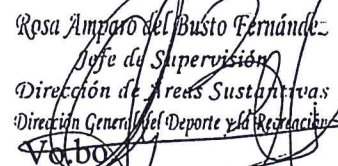 Rosa Amparo del Busto Fernández
Jefe de Supervisión
Dirección de Areas Sustantivas
Dirección General del Deporte y la Recreación
Vo.bo